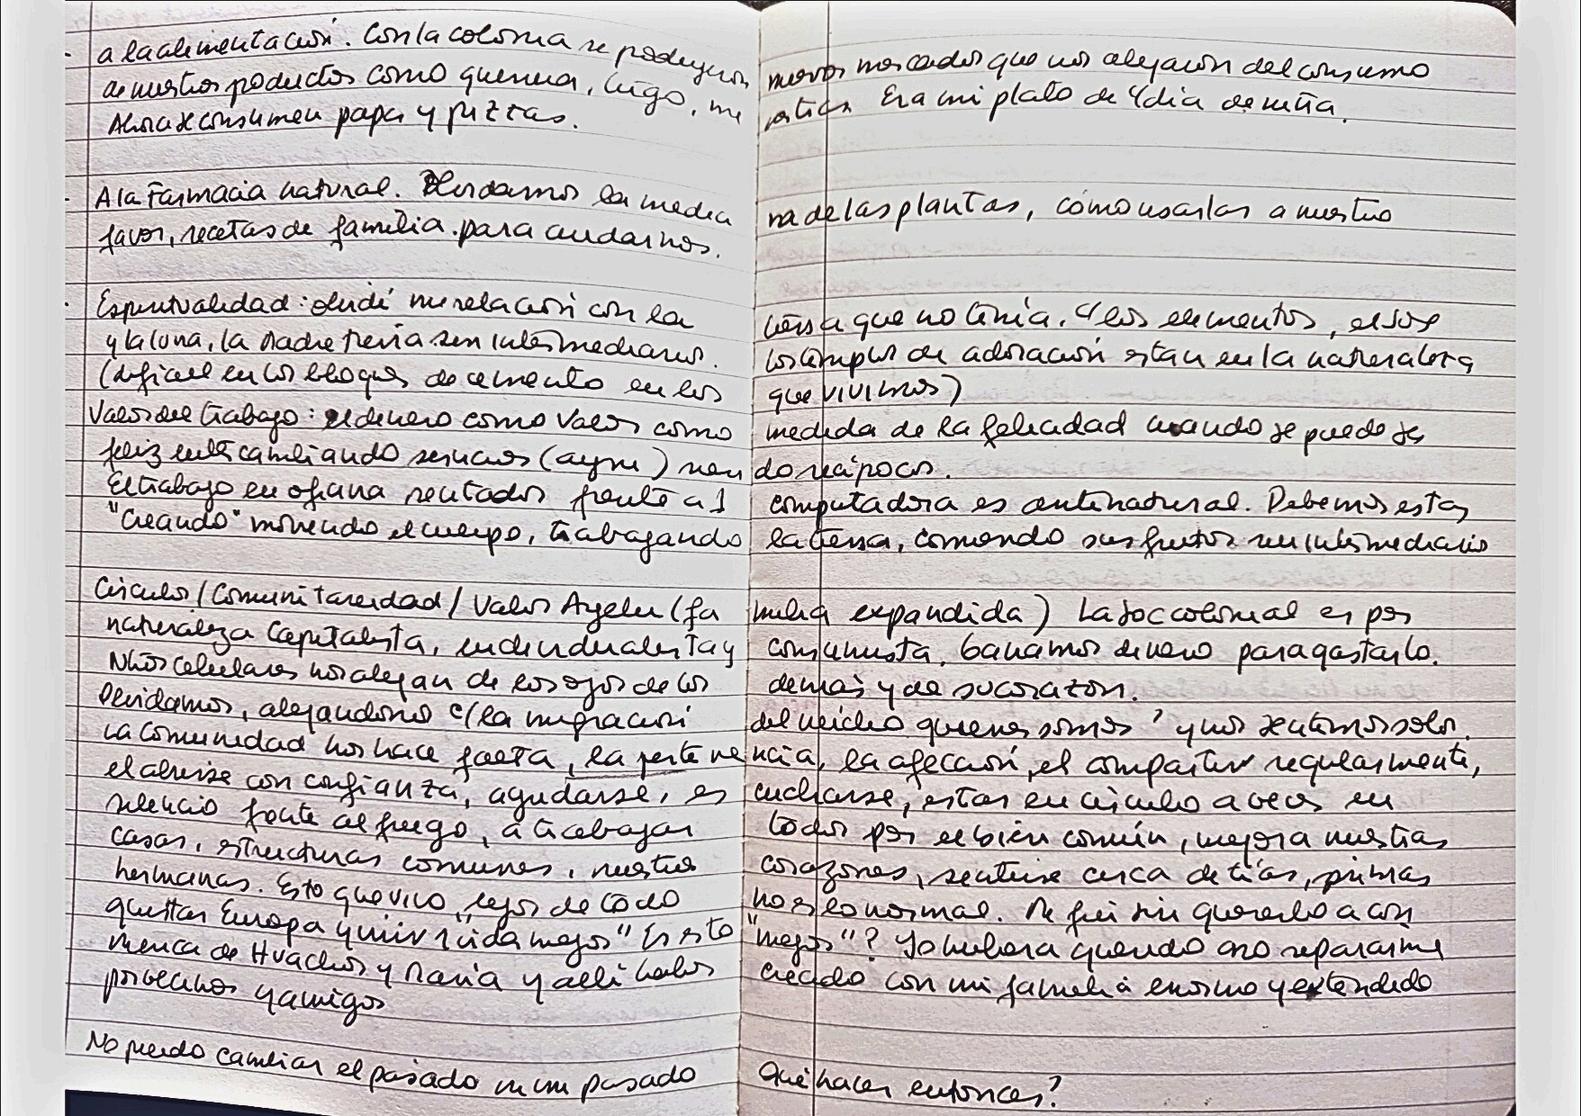 - a la alimentación. Con la colonia se produjeron nuevos mercados que nos alejaron del consumo
de nuestros productos como quinua, trigo, Era mi plato de 4 dia de niña.
Ahora se consumen papa y pizzas.
- A la Farmacia natural. Olvidamos la medicina de las plantas, cómo usarlas a nuestro
favor, recetas de familia. para cuidarnos.
- Espiritualidad: olvidé mi relación con la tierra que no tenía. los elementos, el sol
y la luna, la Madre tierra sin intermediarios. los templos de adoración estan en la naturaleza
(dificil en los bloques de cemento en los que vivimos)
Valor del trabajo: el dinero como valor como medida de la felicidad cuando se puede ser
feliz intercambiando servicios (ayni) siendo recíprocos.
El trabajo en oficina sentados frente a 1 computadora es antinatural. Debemos estar
"creando" moviendo el cuerpo, trabajando la tierra, comiendo sus frutos sin intermediarios
Círculos/Comunitareidad/Valor Ayllu (familia expandida) La soc colonial es por
naturaleza Capitalista, individualista y consumista. Ganamos dinero para gastarlo.
Ntros celulares nos alejan de los ojos de los demás y de su corazón.
Olvidamos, alejandonos c/la migración del quienes somos y nos sentimos solos.
La comunidad nos hace falta, la pertenencia, la afección, el compartir regularmente,
el abrirse con confianza, ayudarse, es cucharse, estar en círculo a veces en
silencio frente al fuego, a trabajar todos por el bien común, mejora nuestras
casas, estructuras comunes, nuestros corazones, sentirse cerca de tías, primas
hermanas. Esto que vivo, lejos de todo no es lo normal. Me fui sin quererlo a con
quistar Europa y vivir "vida mejor" Es esto "mejor"? Yo hubiera querido no separarme
nunca de Huachos y María y allí haber crecido con mi familia enorme y extendido
por vecinos y amigos
No puedo cambiar el pasado ni mi pasado Qué hacer entonces?